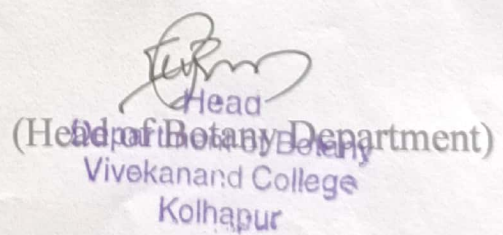 Head
(Head of Botany Department)
Department of Botany
Vivekanand College
Kolhapur